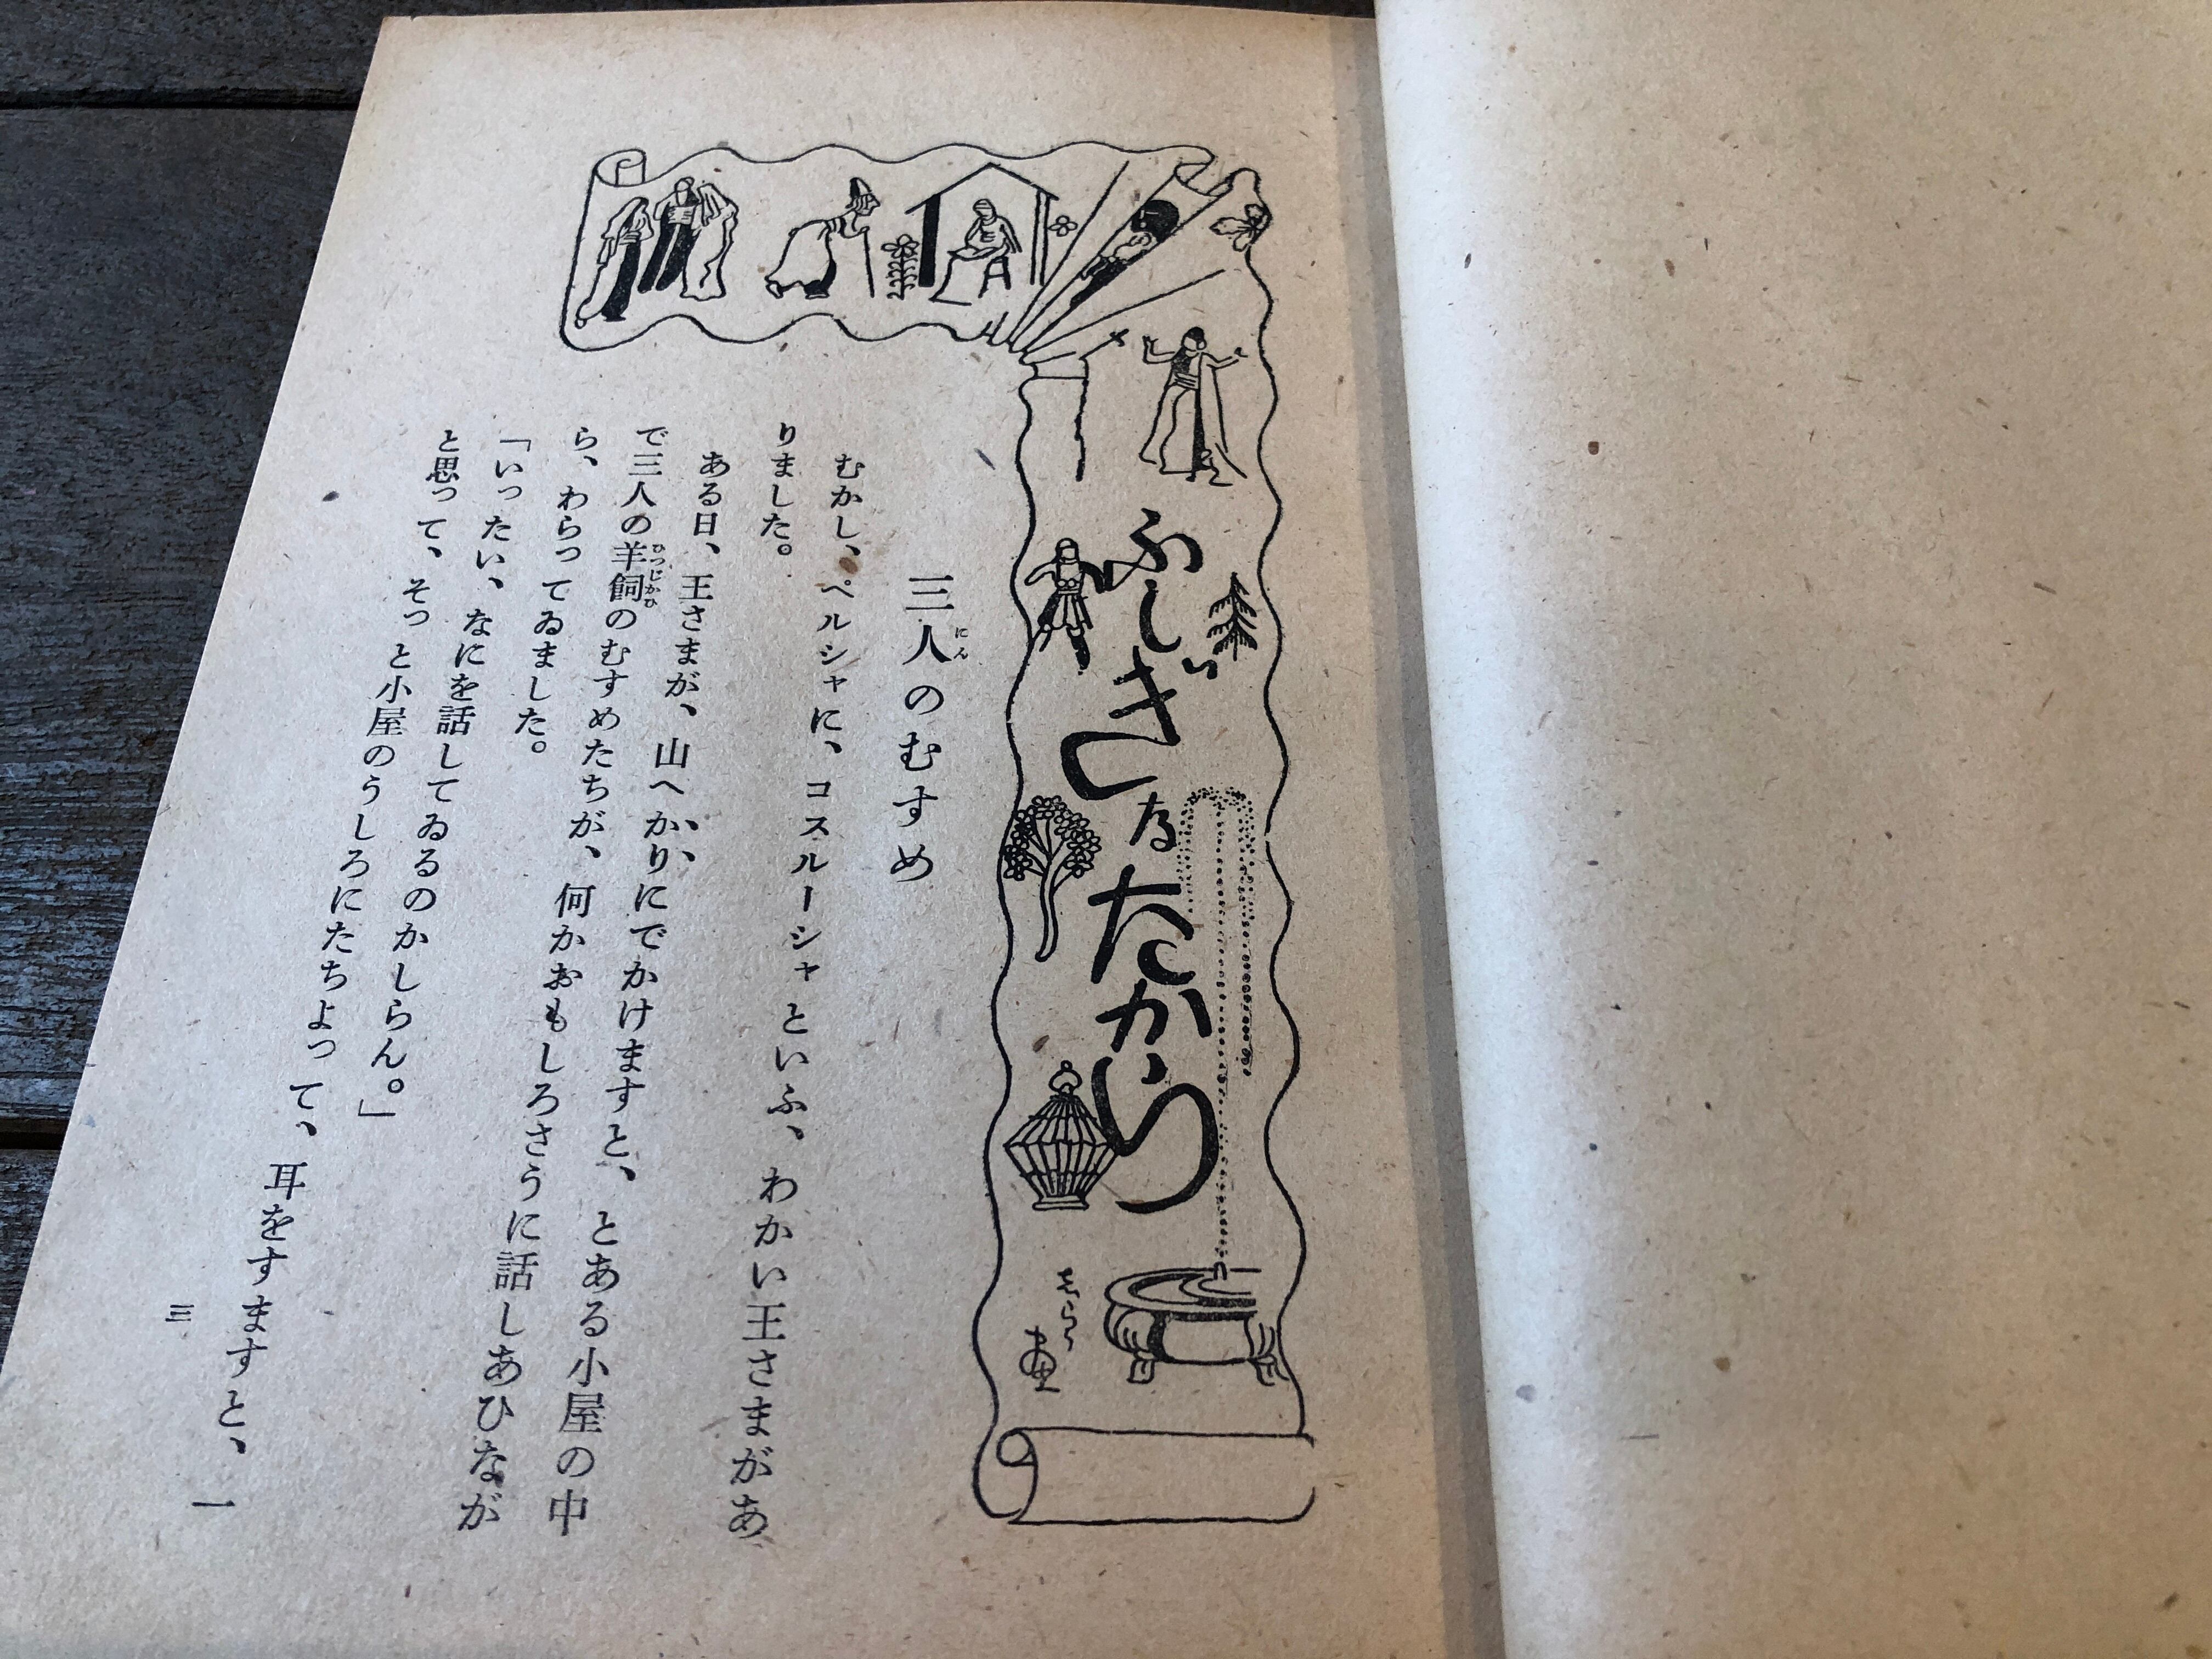 ふしぎなたから
画
三人のむすめ
にん
むかし、ペルシャに、コスルーシャといふ、わかい王さまがあ
りました。
ある日、王さまが、山へかりにでかけますと、とある小屋の中
で三人の羊飼のむすめたちが、何かおもしろさうに話しあひなが
ひつじかひ
ら、わらってゐました。
「いったい、なにを話してゐるのかしらん。」
と思って、そっと小屋のうしろにたちよって、耳をすますと、一
三